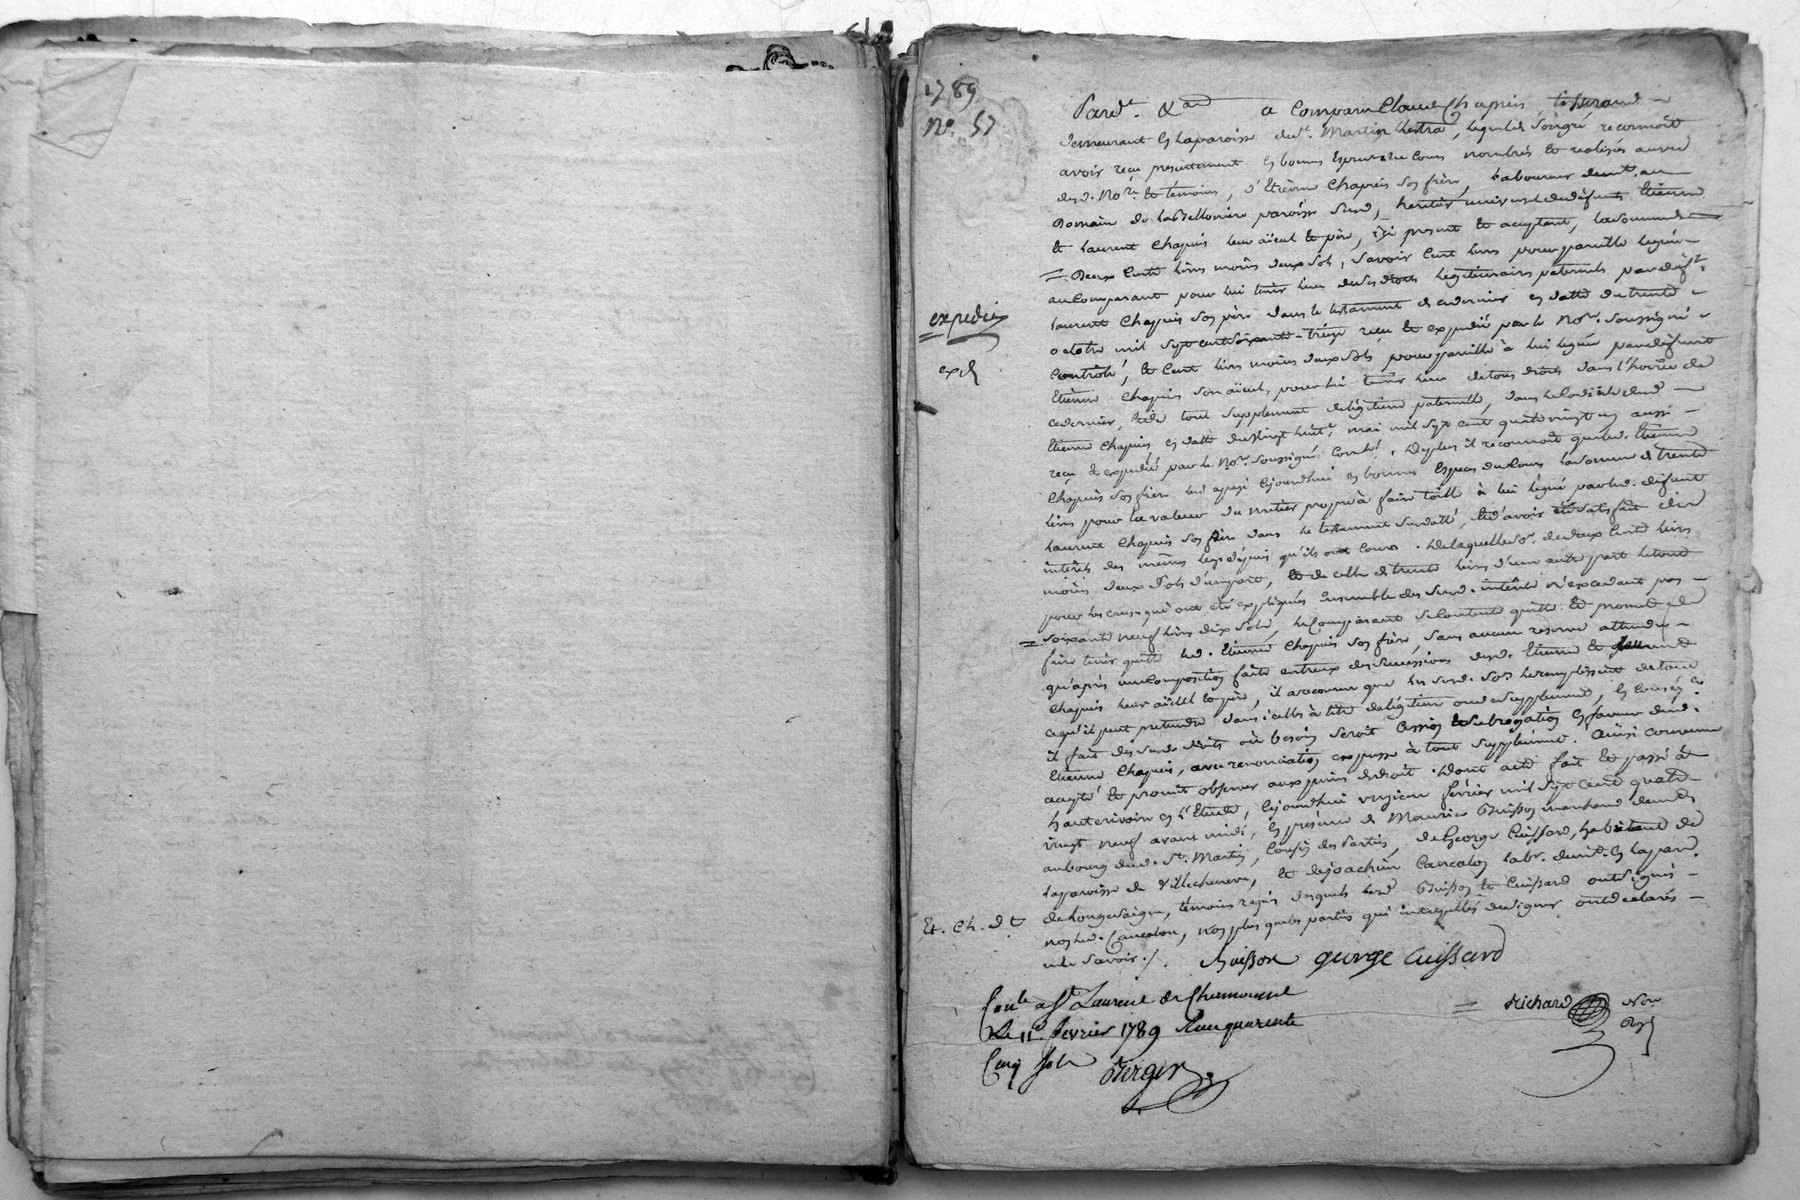 1789
No. 57
Pard.t &a a comparu Claude Chapuis tisserand
demeurant en la paroisse de St. Martin Lestra, lequel de son gré reconnoit
avoir reçu presentement en bonnes especes de cours nombrés et realisés au vu
dud. No.re et temoins, d'Etienne Chapuis son frère, laboureur demt. au
Domaine de la paroisse susd, heritier universel de défunts Etienne
et Laurent Chapuis leur aïeul et père, ici present et acceptant, la somme de
= Deux cents livres moins deux sols, savoir cent livres pour pareille leguée
au comparant pour lui tenir lieu de ses droits legitimaires paternels par deft.
Laurent Chapuis son père dans le testament de ce dernier en datte du trente
octobre mil sept cent soixante-treize reçu et expedié par le No.re soussigné
Contrôlé, et cent livres moins deux sols pour pareille à lui leguée par défunt
Etienne Chapuis son aïeul, pour lui tenir lieu de tous droits dans l'hoirie de
ce dernier, et de tout supplement de légitime paternelle, dans le codicile dud
Etienne Chapuis en datte du vingt huit mai mil sept cent quatre vingt un aussi
reçu et expedié par le No.re soussigné Contr. De plus il reconnoit que led. Etienne
Chapuis son frère lui a payé cejourdhui en bonnes especes de cours la somme de trente
livres pour la valeur du métier propre à faire toile à lui légué par led. défunt
Laurent Chapuis son père dans le testament susdatté, et d'avoir été satisfait des
intérêts des mêmes legs depuis qu'ils ont couru. De laquelle so. de deux cents livres
moins deux sols d'une part, et de celle de trente livres d'une autre part le tout
pour les causes qui ont été expliquées ensemble des susd. intérêts n'excedant pas
= soixante neuf livres dix sols, le Comparant se contente quitte et promet de
faire tenir quitte led. Etienne Chapuis son frère, sans aucune reserve attendu
qu'après une composition faite entreux des successions desd. Etienne et Laurent
Chapuis leurs aïeul et père, il a reconnu que les susd. sos. le remplissent de tout
ce qu'il peut pretendre dans icelles à titre de légitime ou de supplement, en conseq.ce
il fait des susd. droits où besoin seroit cession et subrogation en faveur dud.
Etienne Chapuis, avec renonciation expresse à tout supplement. Ainsi convenu
accepté et promit observer aux peines de droit. Dont acte fait et passé à
hauterivoire en l'Etude, cejourdhui onzieme fevrier mil sept cent quatre
vingt neuf avant midi, en présence de Maurice Buisson marchand demt.
au bourg dud. St. Martin, cousin des parties, de George Cuissard, habitant de
la paroisse de Villecheneve, et de Joachim Cancalon labr. demt. en la par.
de Longesaigne, témoins requis desquels lesd Buisson et Cuissard ont signé
non led. Cancalon, non plus que les parties qui interpellés de signer ont declarés
ne le savoir ./.
expediée
exp
Et. Ch. d t
Buisson george cuissard
Richard Nore
Rl
Con.lé a St. Laurent de Chamousset
Le 11e fevrier 1789 Reçu quarente
Cinq sols
Berger